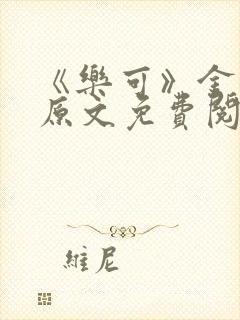 《樂可》全
原文免費閱
維尼